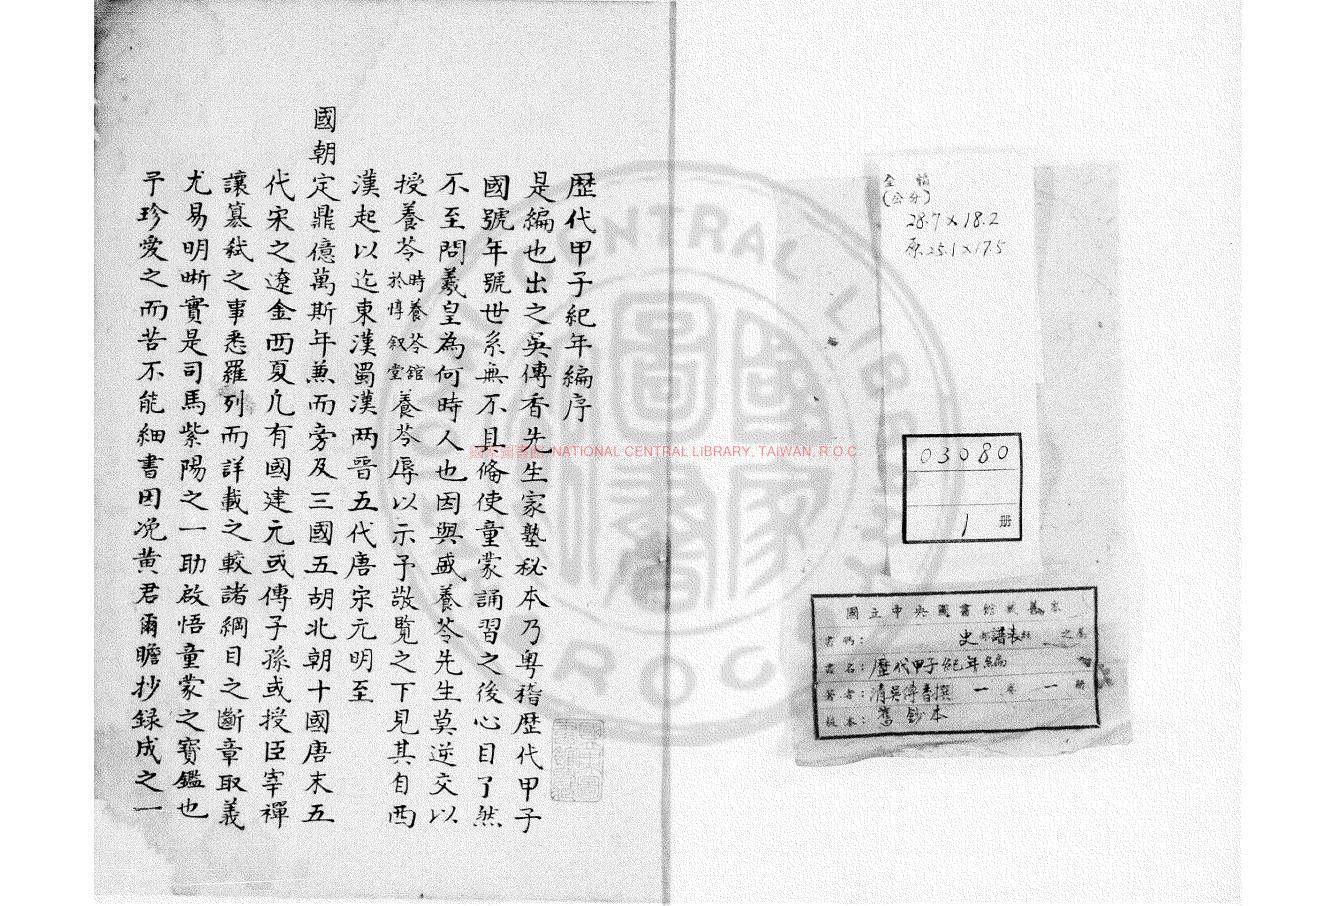 全幅
(公分)
28.7×18.2
原25.1×17.5
03080
1 册
國立中央圖書館藏善本
書碼： 史部譜表類 之屬
書名：歷代甲子紀年編
著者：清吳傳香撰 一卷 一册
版本：舊鈔本
歷代甲子紀年編序
是編也出之吳傳香先生家塾秘本乃粵稽歷代甲子
國號年號世系無不具偹使童蒙誦習之後心目了然
不至問羲皇為何時人也因與盛養苓先生莫逆交以
授養苓時養苓舘於惇叙堂養苓辱以示予敬覧之下見其自西
漢起以迄東漢蜀漢两晋五代唐宋元明至
國朝定鼎億萬斯年兼而旁及三國五胡北朝十國唐末五
代宋之遼金西夏凢有國建元或傳子孫或授臣宰禪
讓簒弑之事悉羅列而詳載之較諸綱目之斷章取義
尤易明晰實是司馬紫陽之一助啟悟童蒙之寳鑑也
予珍愛之而苦不能細書因浼黄君爾瞻抄録成之一
國家圖書館 NATIONAL CENTRAL LIBRARY, TAIWAN, R.O.C